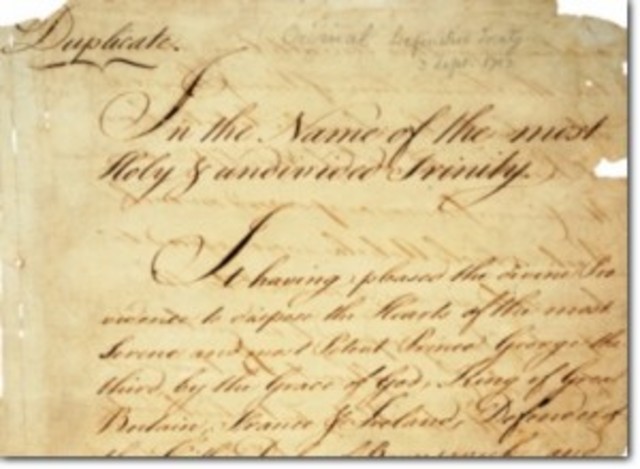 Duplicate.
Original Definitive Treaty
2 Sept. 1783
In the Name of the most
Holy & undivided Trinity.
It having pleased the divine Pro
vidence to dispose the Hearts of the most
Serene and most Potent Prince George the
third, by the Grace of God, King of Great
Britain, France & Ireland, Defender of